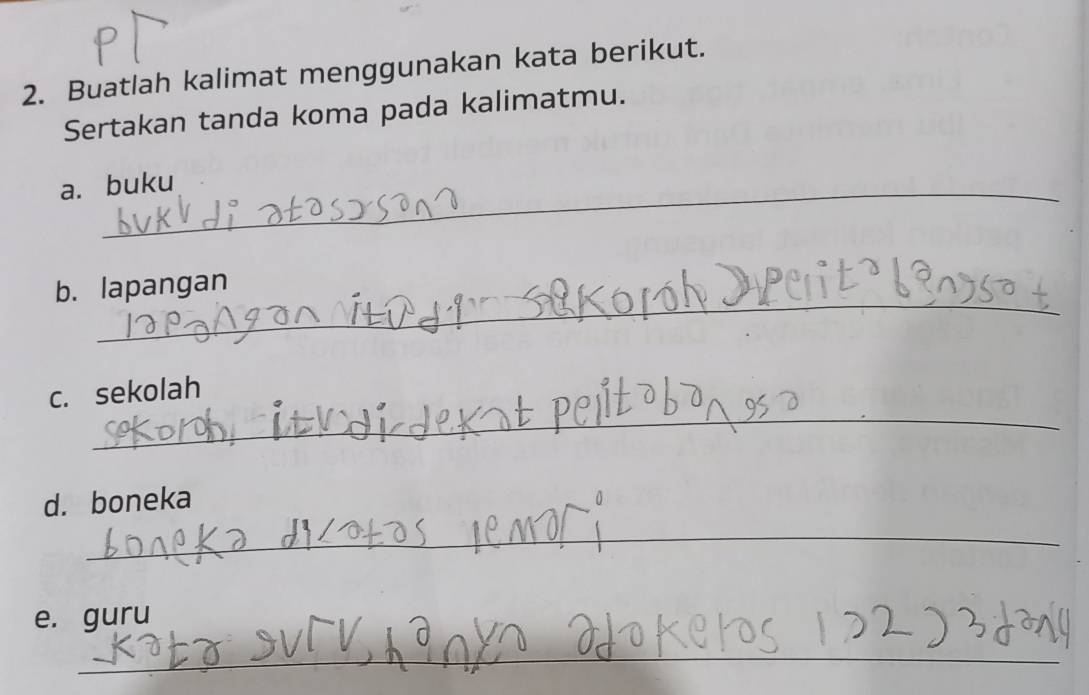 PR
2. Buatlah kalimat menggunakan kata berikut.
Sertakan tanda koma pada kalimatmu.
a. buku
buku di atas
b. lapangan
lapangan itu di sekorah
c. sekolah
sekorah itu di dekat pelita bangsa
d. boneka
boneka di atas lemari
e. guru
kata guru, hanya